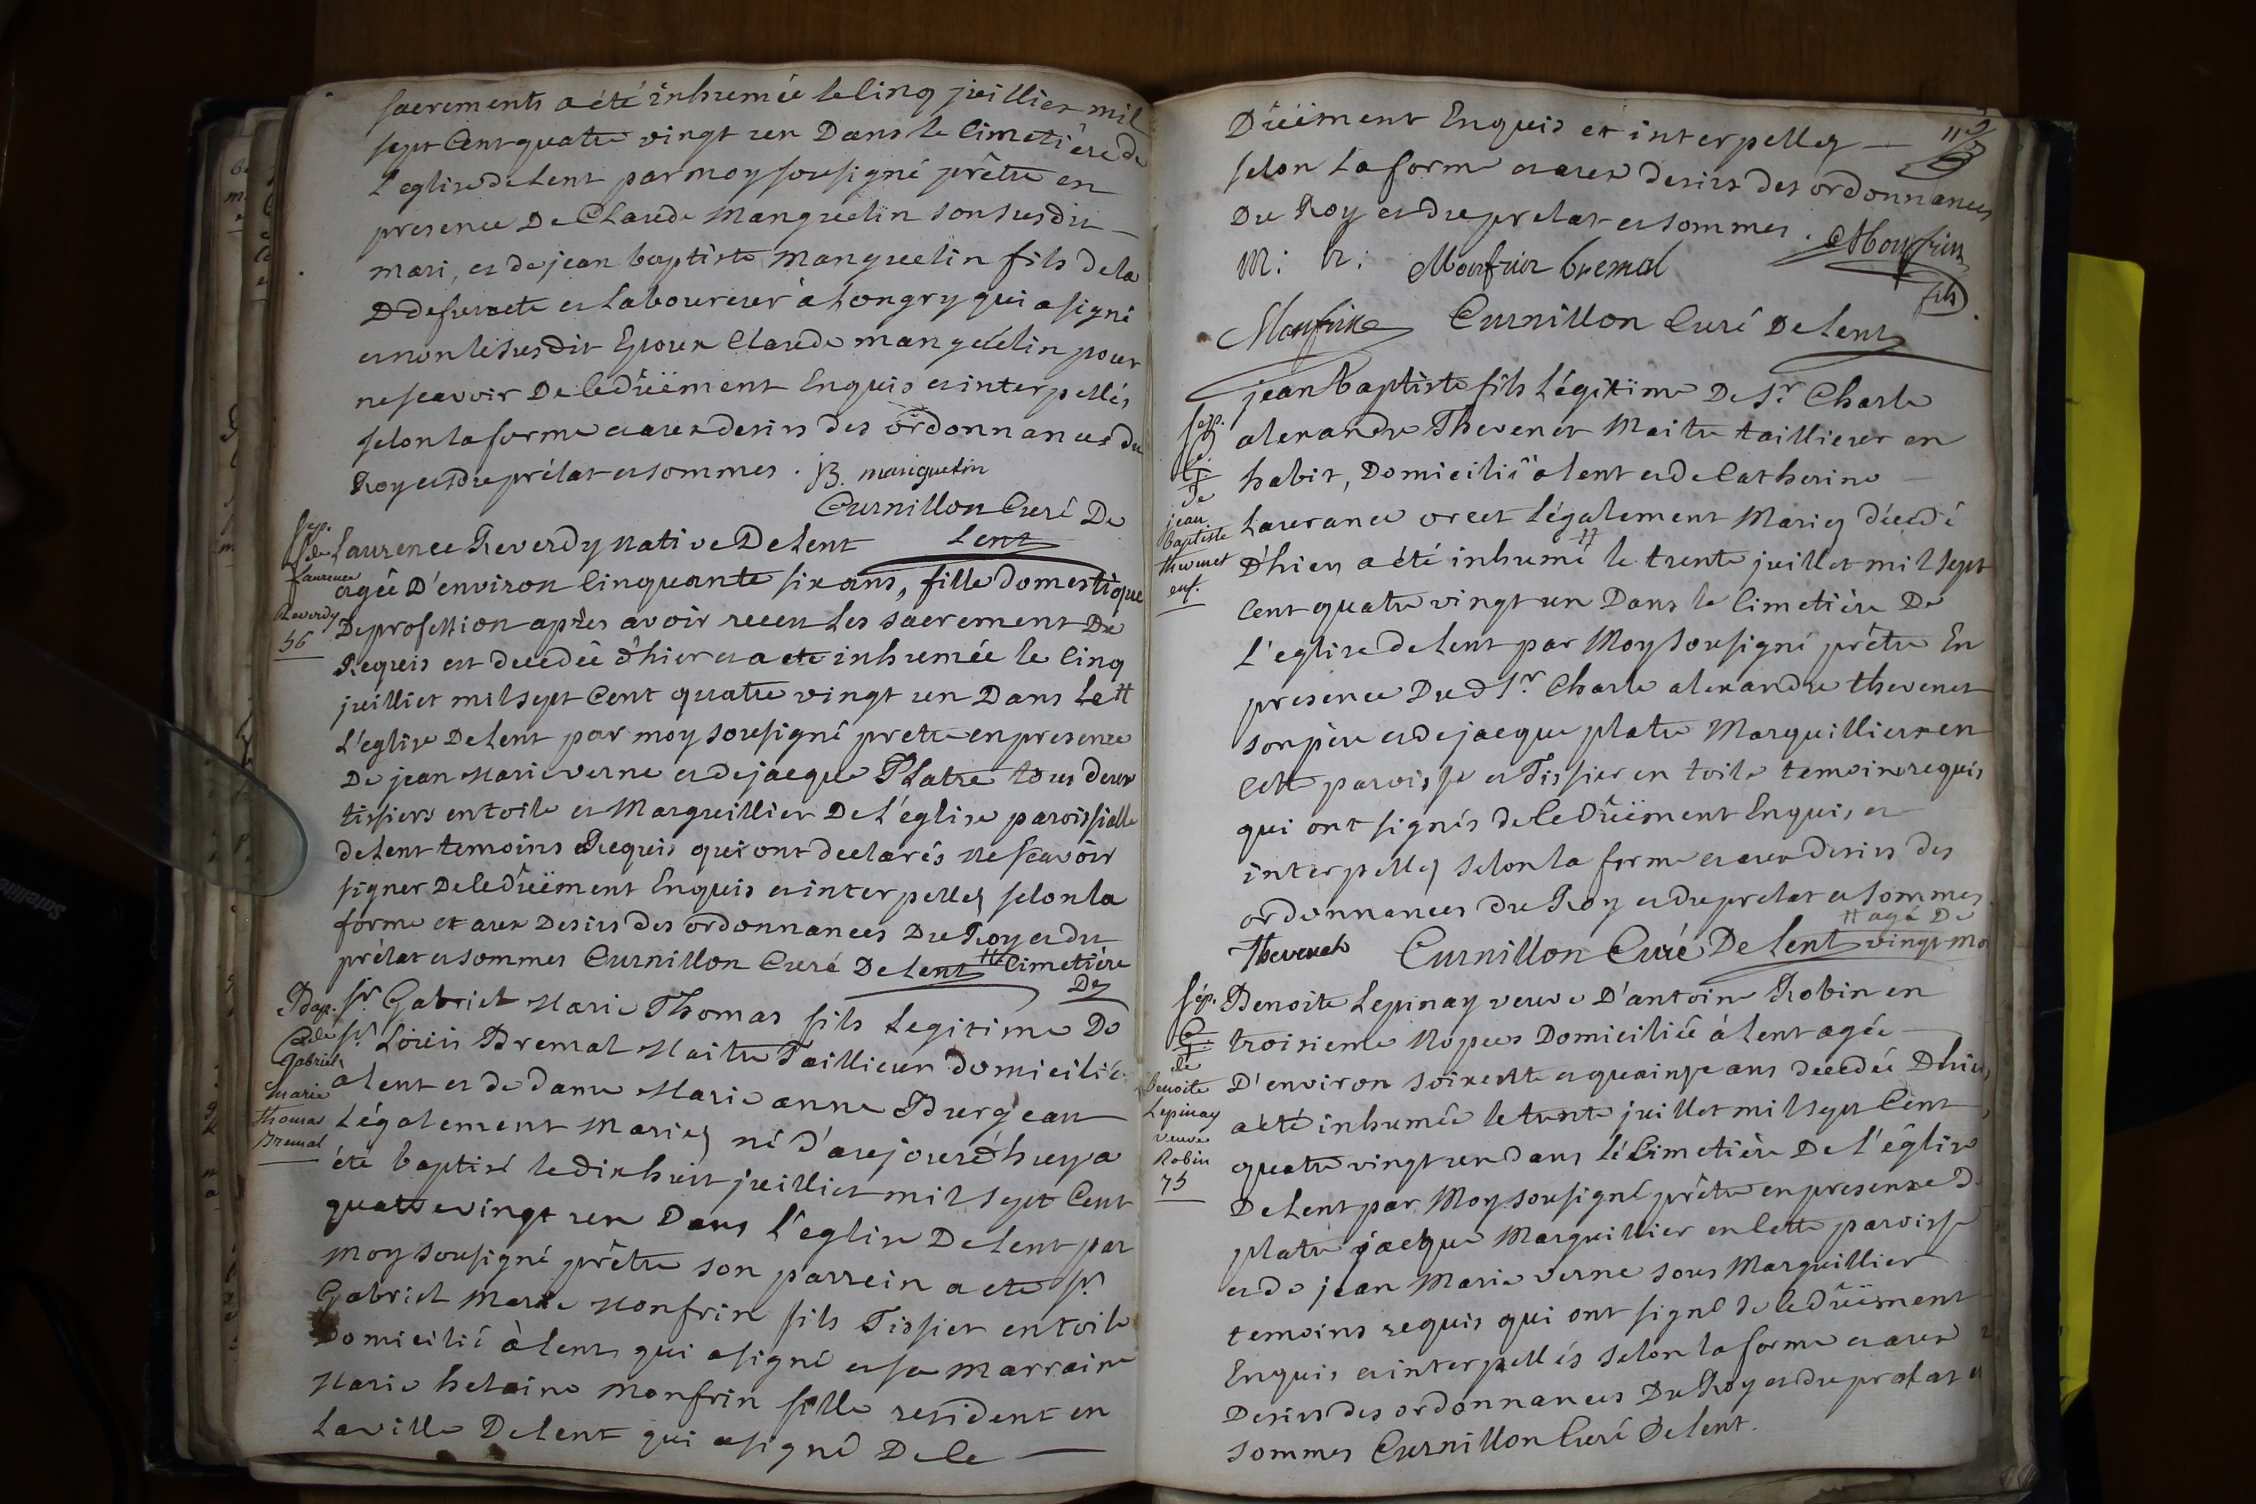 sacrements a été inhumée le cinq juillier mil
sept Cent quatre vingt un Dans le Cimetière de
L'eglise de Lent par moy sousigné prêtre en
presence De Claude Manguelin son susdit —
mari, et de jean baptiste Manguelin fils de la
D defuncte et Laboureur à Longry qui a signé
et non le susdit Epoux Claude manguélin pour
ne scavoir De ce Düëment Enquis et interpellés
selon la forme et aux desirs des ordonnances du
Roy et du prélat et sommes . JB. manguelin
Curnillon Curé De
Lent
Sep.
de
Laurence
Reverdy
56
Laurence Reverdy native De Lent
agée D'environ Cinquante six ans, fille domestique
De profession après avoir receu Les sacrement De
Requis est decedée d'hier et a eté inhumée le Cinq
juilliet mil sept Cent quatre vingt un Dans Le #
L'eglise De Lent par moy sousigné prettre en presence
De jean Marie verne et de jacque Platre tous deux
tissiers en toile et Marguillier De L'église paroissialle
de Lent temoins Requis qui ont declarés ne scavoir
signer De ce Düëment Enquis et interpellez selon la
forme et aux Desirs des ordonnances Du Roy et du
prélat et sommes Curnillon Curé De Lent # Cimetière
De
Bapt.
de
Gabriel
Marie
Thomas
Bremal
sr. Gabriel Marie Thomas fils Legitime De
sr. Loüis Bremal Maitre Taillieur domicilié
a Lent et de dame Marie anne Burgeau
Légalement Mariez né d'aujourd'huy a
été baptisé le dix huit juilliet mil sept Cent
quattre vingt un Dans L'eglise De Lent par
moy sousigné prêtre son parrein a eté sr.
Gabriel Marie Monfrin fils Tissier en toile
Domicilié à Lent qui a signé et sa marraine
Marie helaine Monfrin fille resident en
La ville De Lent qui a signé De ce —
Düëment Enquis et interpellez —
selon La forme et aux desirs des ordonnances
Du Roy et du prelat et sommes . Monfrin
fils
Monfrin bremal
Curnillon Curé De Lent
Sep.
de
jean
baptiste
thevenet
enf.
jean baptiste fils Légitime De sr. Charle
alexandre Thevenet Maitre taillieur en
habit, Domicilié a Lent et de Catherine —
Laurance oreet Légalement Mariez décedé
D'hier a été inhumé # le trente juillet mil sept
Cent quatre vingt un Dans le Cimetière De
L'eglise de Lent par Moy sousigné prêtre En
presence Du d sr. Charle alexandre thevenet
son père et de jacque platre Marguillier en
Cette paroisse et Tissier en toile temoins requis
qui ont signés de ce Düëment Enquis et
interpellez selon la forme et aux desirs des
ordonnances du Roy et du prelat et sommes
# agé De
vingt mo
Thevenet Curnillon Curé De Lent
Sép.
de
Benoite
Lepinay
veuve
Robin
75
Benoite Lepinay veuve D'antoine Robin en
troisieme Nopces Domiciliée à Lent agée —
D'environ soixente et quainze ans decedée Dhier,
a eté inhumée le trente juillet mil sept Cent
quatre vingt un dans le Cimetière De L'église
De Lent par Moy sousigné prêtre en presence d
platre jacque Marguillier en Cette paroisse
et de jean Marie verne sous Marguillier
temoins requis qui ont signé de ce düëment
Enquis et interpellés selon la forme et aux
Desirs des ordonnances Du Roy et du prelat et
sommes Curnillon Curé De Lent.